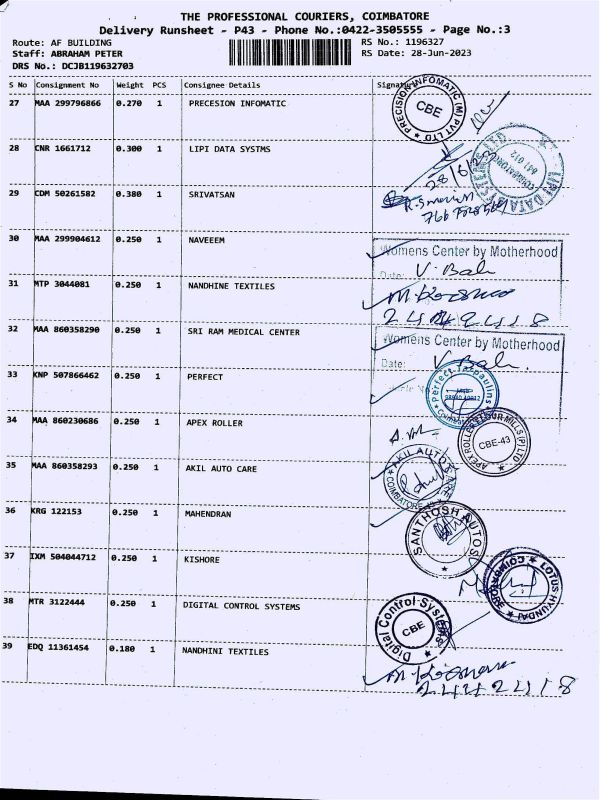 THE PROFESSIONAL COURIERS, COIMBATORE
Delivery Runsheet - P43 - Phone No.:0422-3505555 - Page No.:3
Route: AF BUILDING RS No.: 1196327
Staff: ABRAHAM PETER RS Date: 28-Jun-2023
DRS No.: DCJB119632703
S No Consignment No Weight PCS Consignee Details
27 MAA 299796866 0.270 1 PRECESION INFOMATIC
PRECISION INFOMATIC (M) PVT LTD
CBE
28 CNR 1661712 0.300 1 LIPI DATA SYSTMS
28/6/23
641 012
29 CDM 50261582 0.380 1 SRIVATSAN
30 MAA 299904612 0.250 1 NAVEEEM
Womens Center by Motherhood
Date: V. Bali
31 MTP 3044081 0.250 1 NANDHINE TEXTILES
32 MAA 860358290 0.250 1 SRI RAM MEDICAL CENTER
Womens Center by Motherhood
Date: V. Bali
33 KNP 507866462 0.250 1 PERFECT
Perfect Tarpaulin
34 MAA 860230686 0.250 1 APEX ROLLER
APEX ROLLER FLOUR MILLS (P) LTD
CBE-43
35 MAA 860358293 0.250 1 AKIL AUTO CARE
AKIL AUTO CARE
COIMBATORE
36 KRG 122153 0.250 1 MAHENDRAN
SANTHOSH AUTOS
37 IXM 504044712 0.250 1 KISHORE
LOTUS HYUNDAI
COIMBATORE
38 MTR 3122444 0.250 1 DIGITAL CONTROL SYSTEMS
Digital Control Systems
CBE
39 EDQ 11361454 0.180 1 NANDHINI TEXTILES